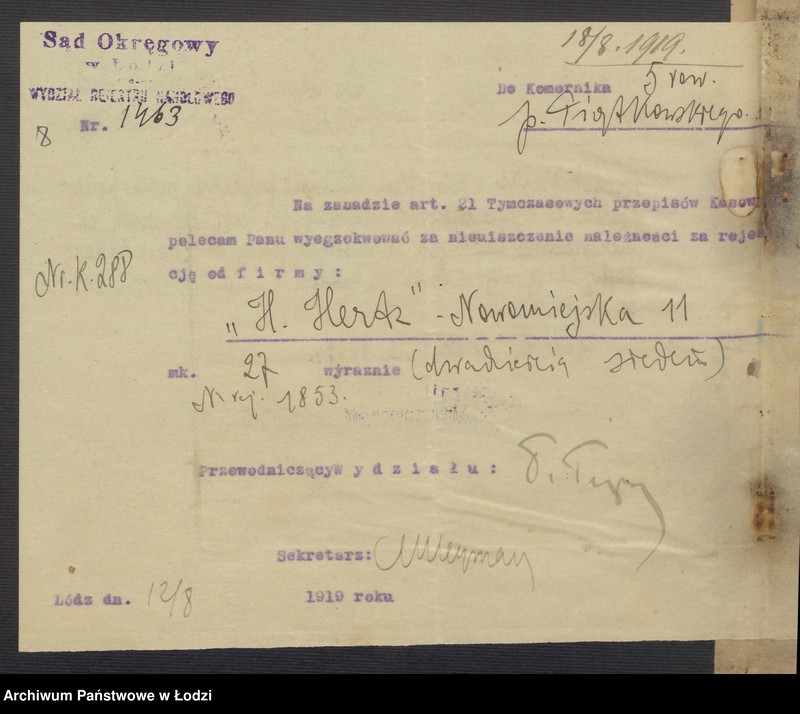 Sąd Okręgowy
w Łodzi
WYDZIAŁ REJESTRU HANDLOWEGO
Nr. 1463
8
18/8. 1919.
Do Komornika 5 rew.
p. Piątkowskiego.
Na zasadzie art. 21 Tymczasowych przepisów Kasow
polecam Panu wyegzokwować za nieuiszczenie należności za reje
cję od f i r m y :
Nr. K. 288
„H. Hertz" - Nowomiejska 11
mk. 27 wyraznie (dwadzieścia siedem)
N rej. 1853.
PrzewodniczącyW y d z i a ł u :
Sekretarz:
Łódz dn. 12/8 1919 roku
Archiwum Państwowe w Łodzi